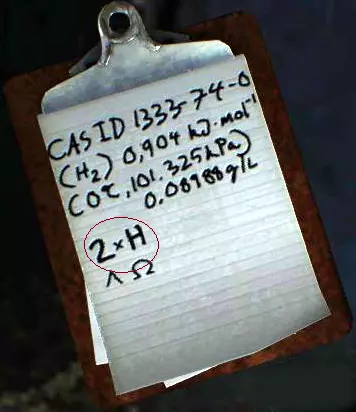 CAS ID 1333-74-0
(H₂) 0,904 kJ·mol⁻¹
(0℃, 101.325kPa)
0.08988g/L
2×H
^ Ω